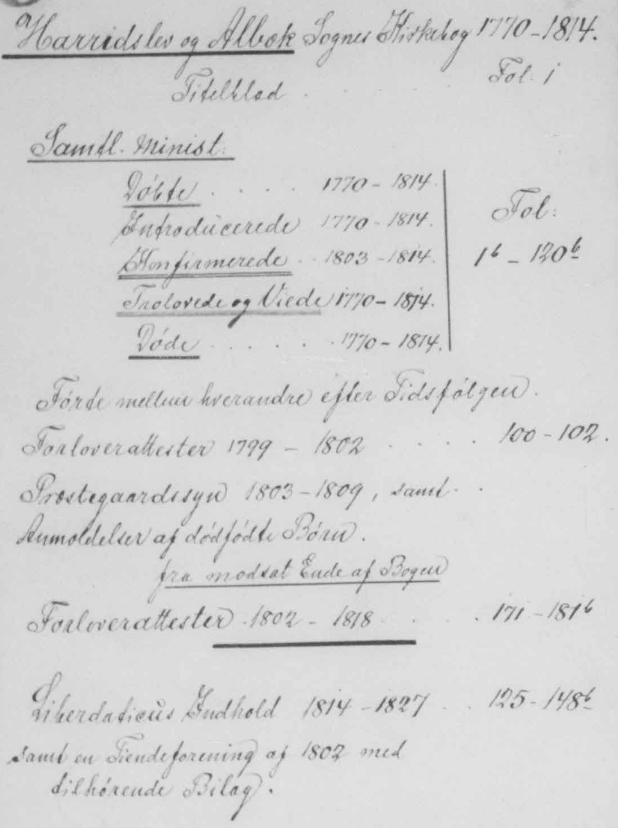 Harridslev og Albæk Sognes Kirkebog 1770-1814.
Titelblad . . . . Fol. 1
Samtl. Minist:
Døbte . . . . 1770-1814.
Introducerede 1770-1814.
Fol:
Konfirmerede . . 1803-1814. 1b - 120b
Trolovede og Viede 1770-1814.
Døde . . . . . 1770-1814.
Førte mellem hverandre efter Tidsfølgen.
Forloverattester 1799 - 1802 . . . . 100-102.
Præstegaardssyn 1803-1809, samt . .
Anmeldelser af dødfødte Børn.
fra modsat Ende af Bogen
Forloverattester . 1802 - 1818 . . . . 171-181b
Liber daticus Indhold 1814-1827 . . 125-148b
samt en Tiendeforening af 1802 med
tilhørende Bilag.